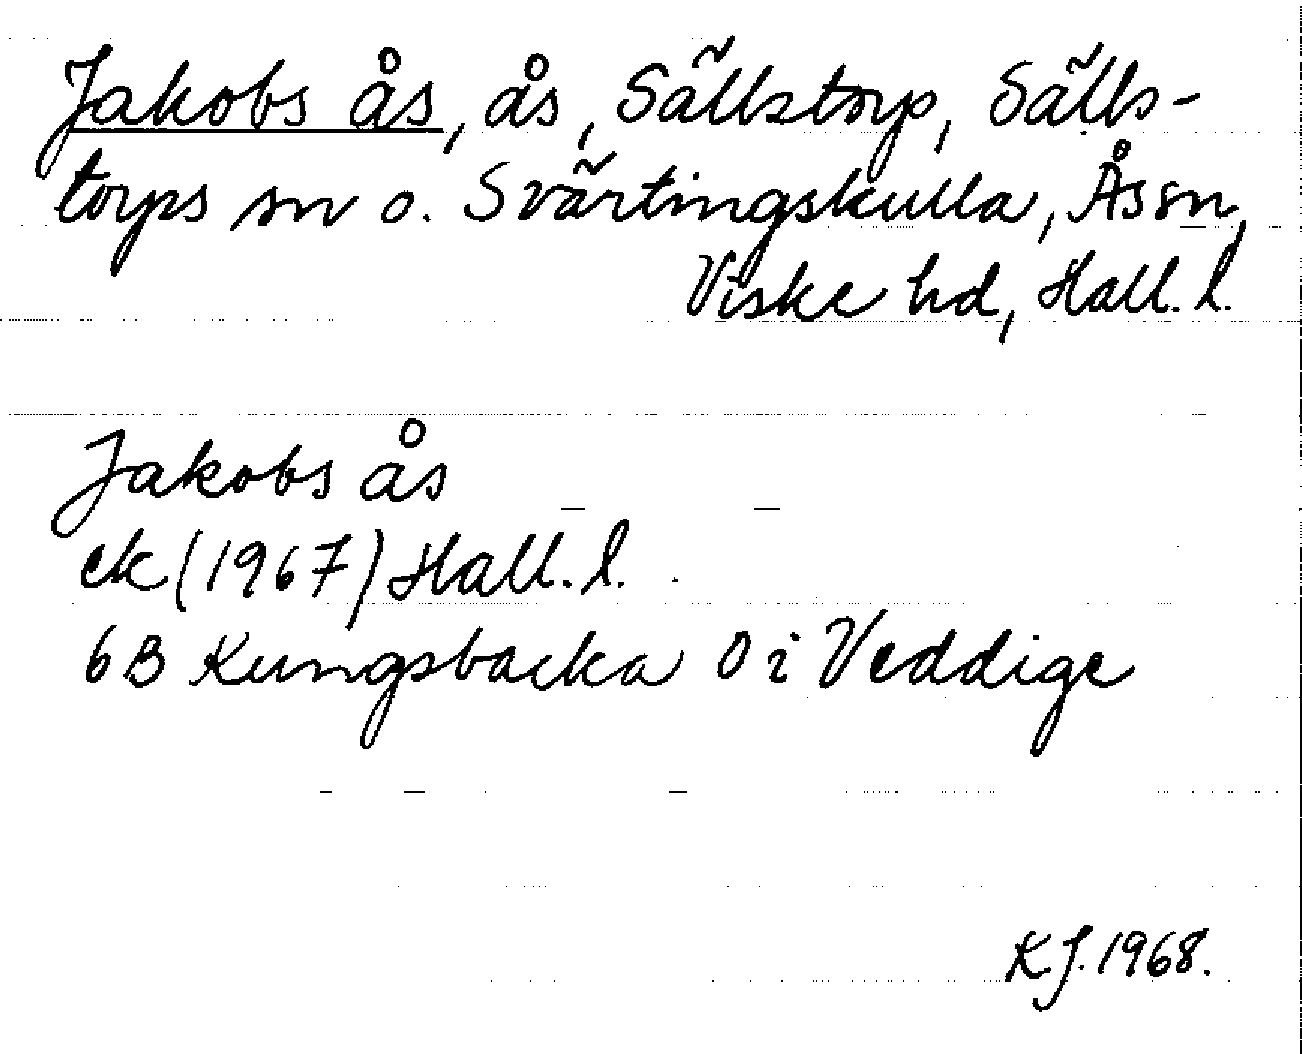 Jakobs ås, ås, Sällstorp, Sälls-
torps sn o. Svärtingskulla, Ås sn,
Viske hd, Hall. l.
Jakobs ås
ek (1967) Hall. l.
6B Kungsbacka O i Veddige
K.J. 1968.